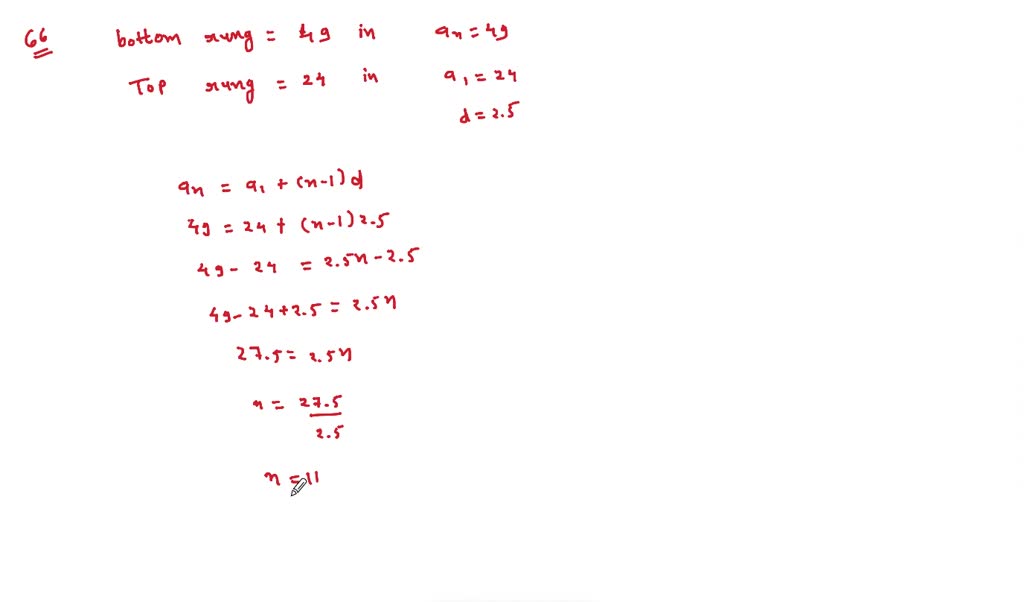 66 bottom rung = 49 in an = 49
Top rung = 24 in a1 = 24
d = 2.5
an = a1 + (n-1)d
49 = 24 + (n-1)2.5
49 - 24 = 2.5n - 2.5
49 - 24 + 2.5 = 2.5n
27.5 = 2.5n
n = 27.5
2.5
n = 11